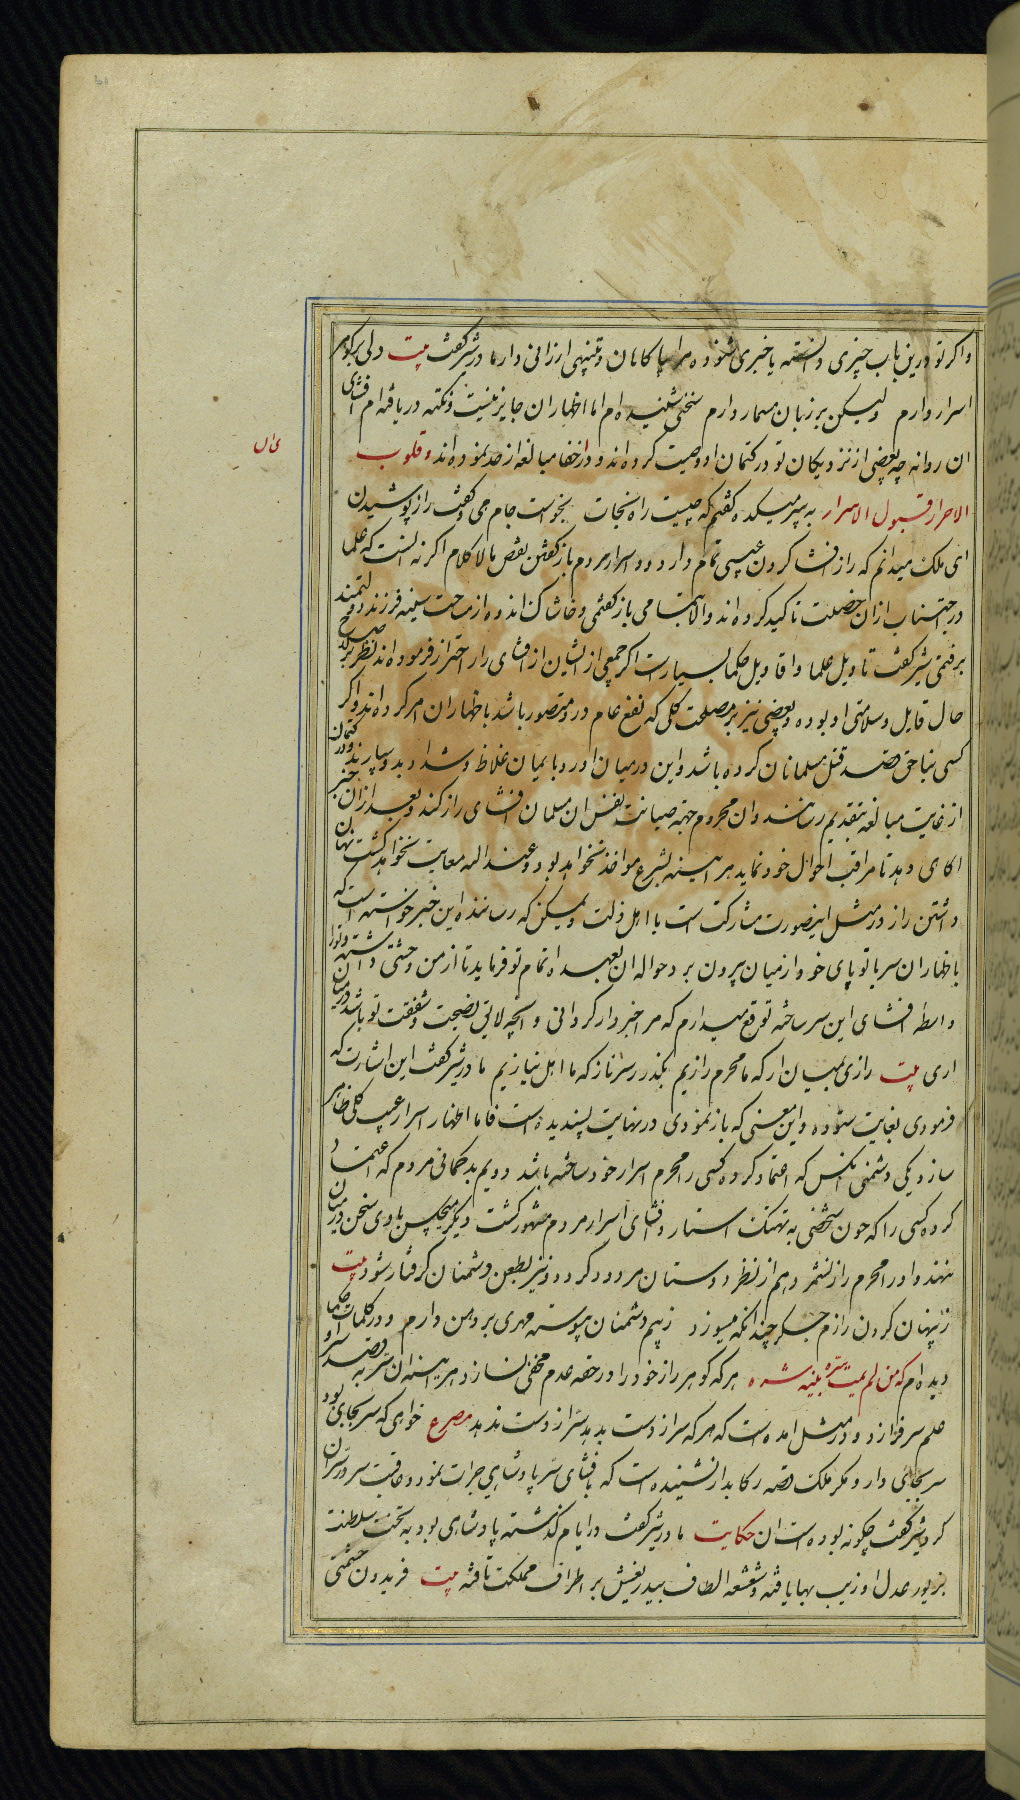 و اگر تو درین باب چیزی دانسته یا خبری شنوده مرا پاکاهان و تنبیهی ارزانی دار مادر شیر گفت بیت دلی پر گوهر
اسرار دارم ولیکن بر زبان مسمار دارم سخنی شنیده‌ام اما اظهار ان جایز نیست و نکته دریافته‌ام افشای
ان روا نه چه بعضی از نزدیکان تو در کتمان او وصیت کرده‌اند و در اخفا مبالغه از حد نموده‌اند و قلوب
الاحرار قبول الاسرار به پیر میکده گفتم که چیست راه نجات بخواست جام می و گفت راز پوشیدن
ای ملک میدانم که راز افشا کردن عیبی تمام دارد و اسرار مردم باز گفتن نقص مالا کلام اگر نه انست که علما
در اجتناب ازان خصلت تاکید کرده‌اند و الا بتمامی باز گفتمی و خاشاک اندوه از ساحت سینه فرزند دلتمند
برفتمی شیر گفت تاویل علما و اقاویل حکما بسیارست اگر جمعی از ایشان از افشای راز احتراز فرموده‌اند نظر بر صلاح
حال قایل و سلامتی او بوده و بعضی نیز بر مصلحت کلی که نفع عام در و متصور باشد باظهار ان امر کرده‌اند و اگر
کسی بناحق قصد قتل مسلمانان کرده باشد و این در میان اورد و بایمان غلاظ و شداد بدو سپارند و در کتمان
ان غایت مبالغه بتقدیم رسانند و ان محروم جهة صیانت نفس ان مسلمان افشای راز کند و بعد ازان خبر
اگاهی دهد تا مراقب احوال خود نماید هر اینه بشرع مواخذ نخواهد بود و عند الله معاتب نخواهد گشت پنهان
داشتن راز در مثل این صورت مشارکت است با اهل ذلت و یمکن که رساننده این خبر خواسته است که
باظهار ان سر با تو پای خود از میان بیرون برد و حواله ان بعهد اهتمام تو فرماید تا از من وحشتی داشته و ترا
واسطه افشای این سر ساخته توقع میدارم که مرا خبردار گردانی و انچه لایق نصیحت و شفقت تو باشد در میان
اری بیت رازی بمیان ار که ما محرم رازیم بگذر ز سر ناز که ما اهل نیازیم مادر شیر گفت این اشارت که
فرمودی بغایت ستوده و این معنی که باز نمودی در نهایت پسندیده است فاما اظهار اسرار عیب کلی ظاهر
سازد یکی دشمنی انکس که اعتماد کرده کسی را محرم اسرار خود ساخته باشد دویم بدگمانی مردم که اعتماد
کرده کسی را که چون شخصی به تهتک استار و افشای اسرار مردم مشهور گشت دیگر هیچکس با وی سخن در میان
ننهد و او را محرم راز نشمرد هم از نظر دوستان مردود گردد و نیز بطعن دشمنان گرفتار شود بیت
ز پنهان کردن رازم جگر چندانکه میسوزد ز بیم دشمنان پیوسته مهری بر دهن دارم و در کلمات حکما
دیده‌ام که من لم یمت سره بلبه سره هر که گوهر راز خود را در حقه عدم مخفی نسازد هر اینه ان سر به قصد سر او
علم سر فرازد و در مثل امده‌ است که هر که سر از دست بدهد سر از دست بدهد مصرع خواهی که سر بجای بود
سر بجای دار و مگر ملک قصه رکابدار نشنیده است که بافشای سر پادشاهی جرات نمود و عاقبت سر در سر ان
کرد شیر گفت چگونه بوده است ان حکایت مادر شیر گفت در ایام گذشته پادشاهی بود به تخت سلطنت
بزیور عدل او زیب بها یافته و شعشعه الطاف بیدریغش بر اطراف مملکت تافته بیت فریدون حشمتی